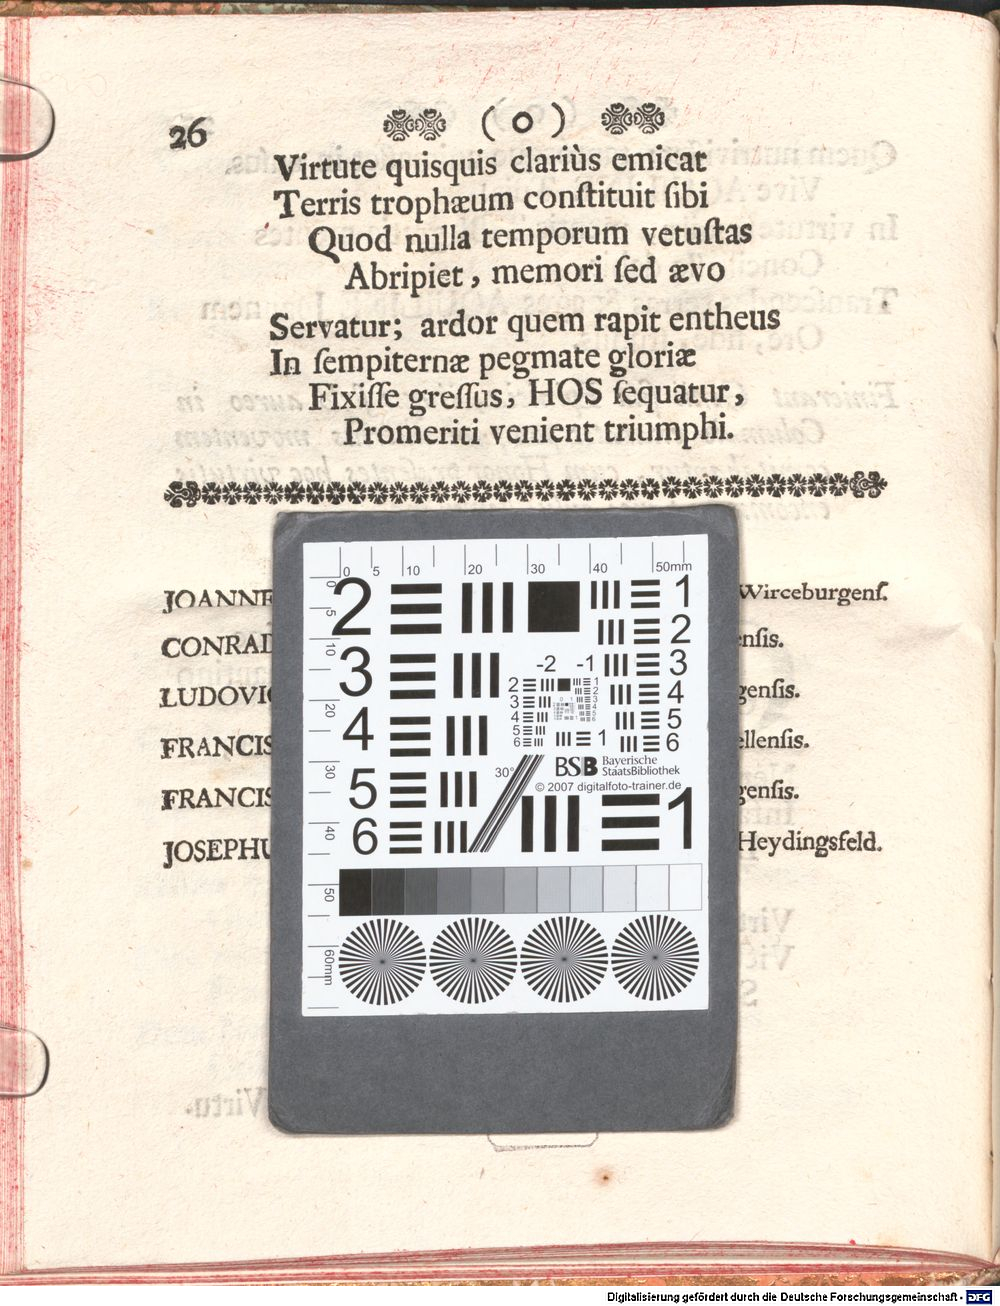 26 ( o )
Virtute quisquis clariùs emicat
Terris trophæum conſtituit ſibi
Quod nulla temporum vetuſtas
Abripiet, memori ſed ævo
Servatur; ardor quem rapit entheus
In ſempiternæ pegmate gloriæ
Fixiſſe greſſus, HOS ſequatur,
Promeriti venient triumphi.
JOANNE Wirceburgenſ.
CONRAD enſis.
LUDOVIC genſis.
FRANCIS ellenſis.
FRANCIS genſis.
JOSEPHU Heydingsfeld.
0 5 10 20 30 40 50mm
0 5 10 20 30 40 50 60mm
2 1
2
3 -2 -1 3
4 4
5
6
5 30° BSB Bayerische
StaatsBibliothek
© 2007 digitalfoto-trainer.de
6 1
Digitalisierung gefördert durch die Deutsche Forschungsgemeinschaft - DFG